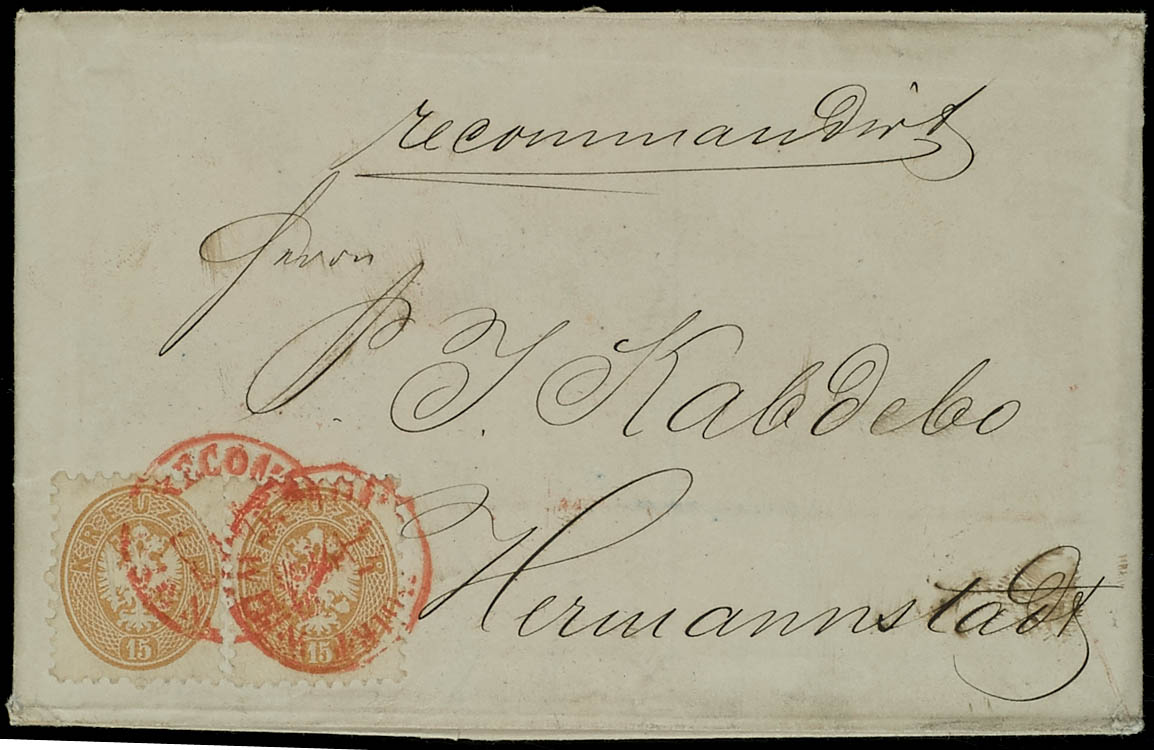 recommandirt
Herrn
P. J. Kabdebo
Hermannstadt
RECOM
KREUZER
15
KREUZER
15